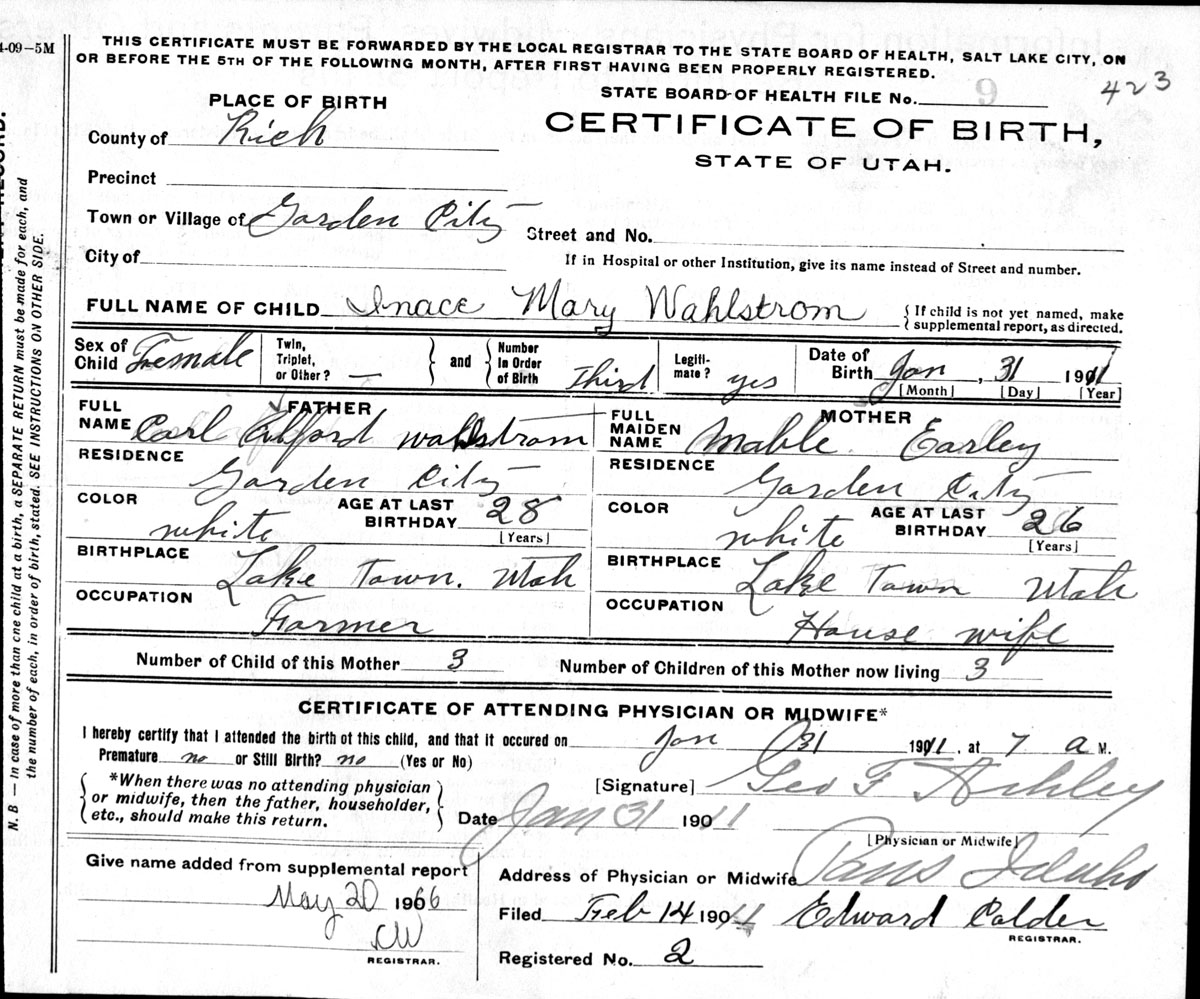 4-09-5M
THIS CERTIFICATE MUST BE FORWARDED BY THE LOCAL REGISTRAR TO THE STATE BOARD OF HEALTH, SALT LAKE CITY, ON
OR BEFORE THE 5TH OF THE FOLLOWING MONTH, AFTER FIRST HAVING BEEN PROPERLY REGISTERED.
STATE BOARD OF HEALTH FILE No. 9 423
PLACE OF BIRTH
CERTIFICATE OF BIRTH,
STATE OF UTAH.
County of Rich
Precinct
Town or Village of Garden City
Street and No.
City of
If in Hospital or other Institution, give its name instead of Street and number.
FULL NAME OF CHILD Inace Mary Wahlstrom { If child is not yet named, make
supplemental report, as directed.
Sex of Child Female
Twin, Triplet, or Other? —
and
Number in Order of Birth Third
Legiti-mate? yes
Date of Birth Jan, 31 1911
[Month] [Day] [Year]
FATHER
FULL NAME Carl Wahlstrom
RESIDENCE Garden City
COLOR white
AGE AT LAST BIRTHDAY 28
[Years]
BIRTHPLACE Lake Town. Utah
OCCUPATION Farmer
MOTHER
FULL MAIDEN NAME Mable Earley
RESIDENCE Garden City
COLOR white
AGE AT LAST BIRTHDAY 26
[Years]
BIRTHPLACE Lake Town Utah
OCCUPATION House wife
Number of Child of this Mother 3 Number of Children of this Mother now living 3
CERTIFICATE OF ATTENDING PHYSICIAN OR MIDWIFE*
I hereby certify that I attended the birth of this child, and that it occured on Jan 31 1911, at 7 a M.
Premature no or Still Birth? no (Yes or No)
*When there was no attending physician
or midwife, then the father, householder,
etc., should make this return.
[Signature] Geo F Ashley
Date Jan 31 1911
[Physician or Midwife]
Give name added from supplemental report
May 20 1966
CW
REGISTRAR.
Address of Physician or Midwife Paris Idaho
Filed Feb 14 1911 Edward Calder
REGISTRAR.
Registered No. 2
N. B — In case of more than one child at a birth, a SEPARATE RETURN must be made for each, and
the number of each, in order of birth, stated. SEE INSTRUCTIONS ON OTHER SIDE.